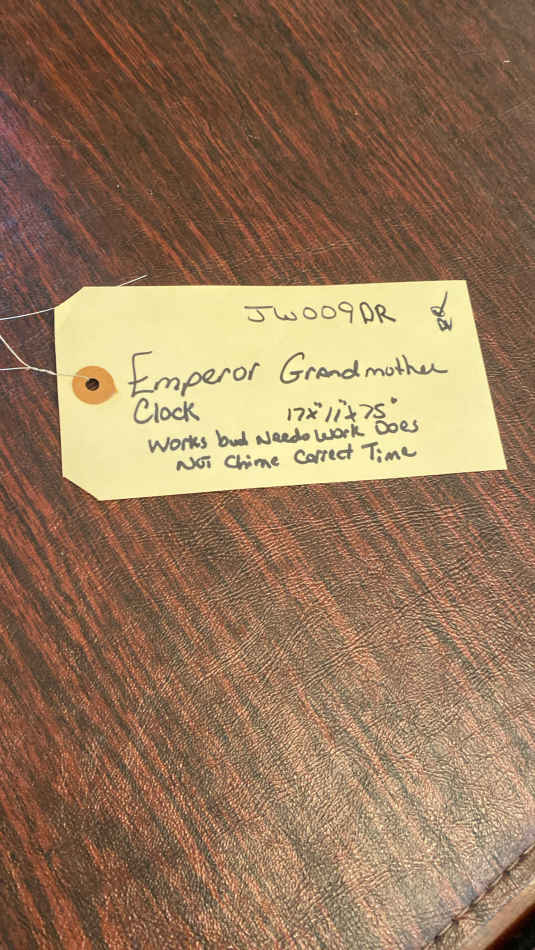 JW009DR
Emperor Grandmother
Clock 17x"11"x75"
Works bud Needs Work Does
Not Chime Correct Time